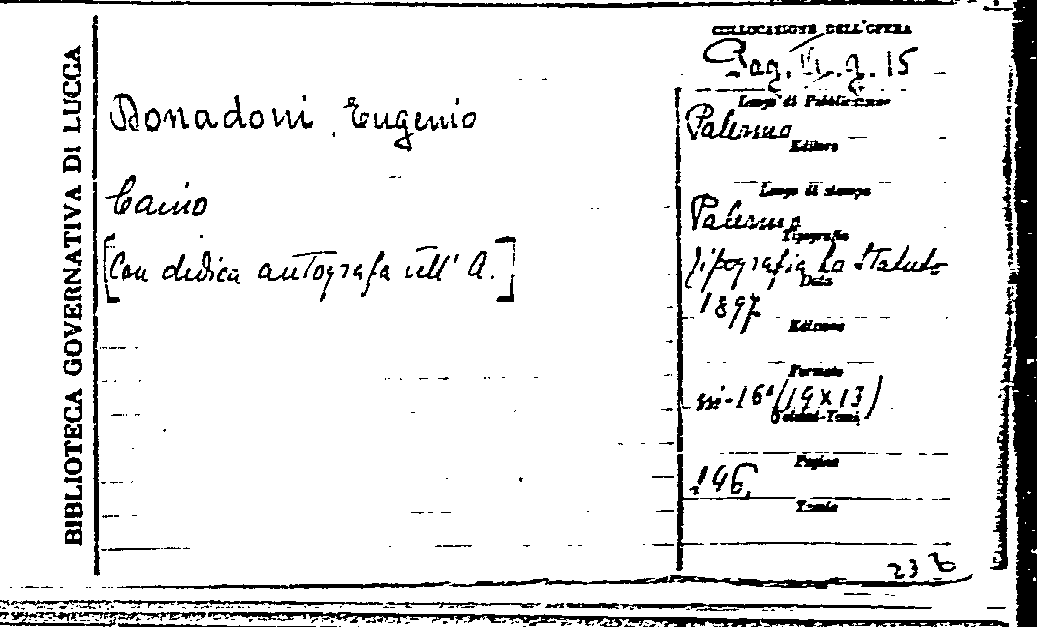 BIBLIOTECA GOVERNATIVA DI LUCCA
Donadoni, Eugenio
Caino
[Con dedica autografa dell' A.]
COLLOCAZIONE DELL'OPERA
Pag. VI. g. 15
Luogo di Pubblicazione
Palermo
Editore
Luogo di stampa
Palermo
Tipografia
Tipografia Lo Statuto
Data
1897
Edizione
Formato
in-16° (19 x 13)
Volumi-Tomi
Pagine
146.
Tavole
23 b